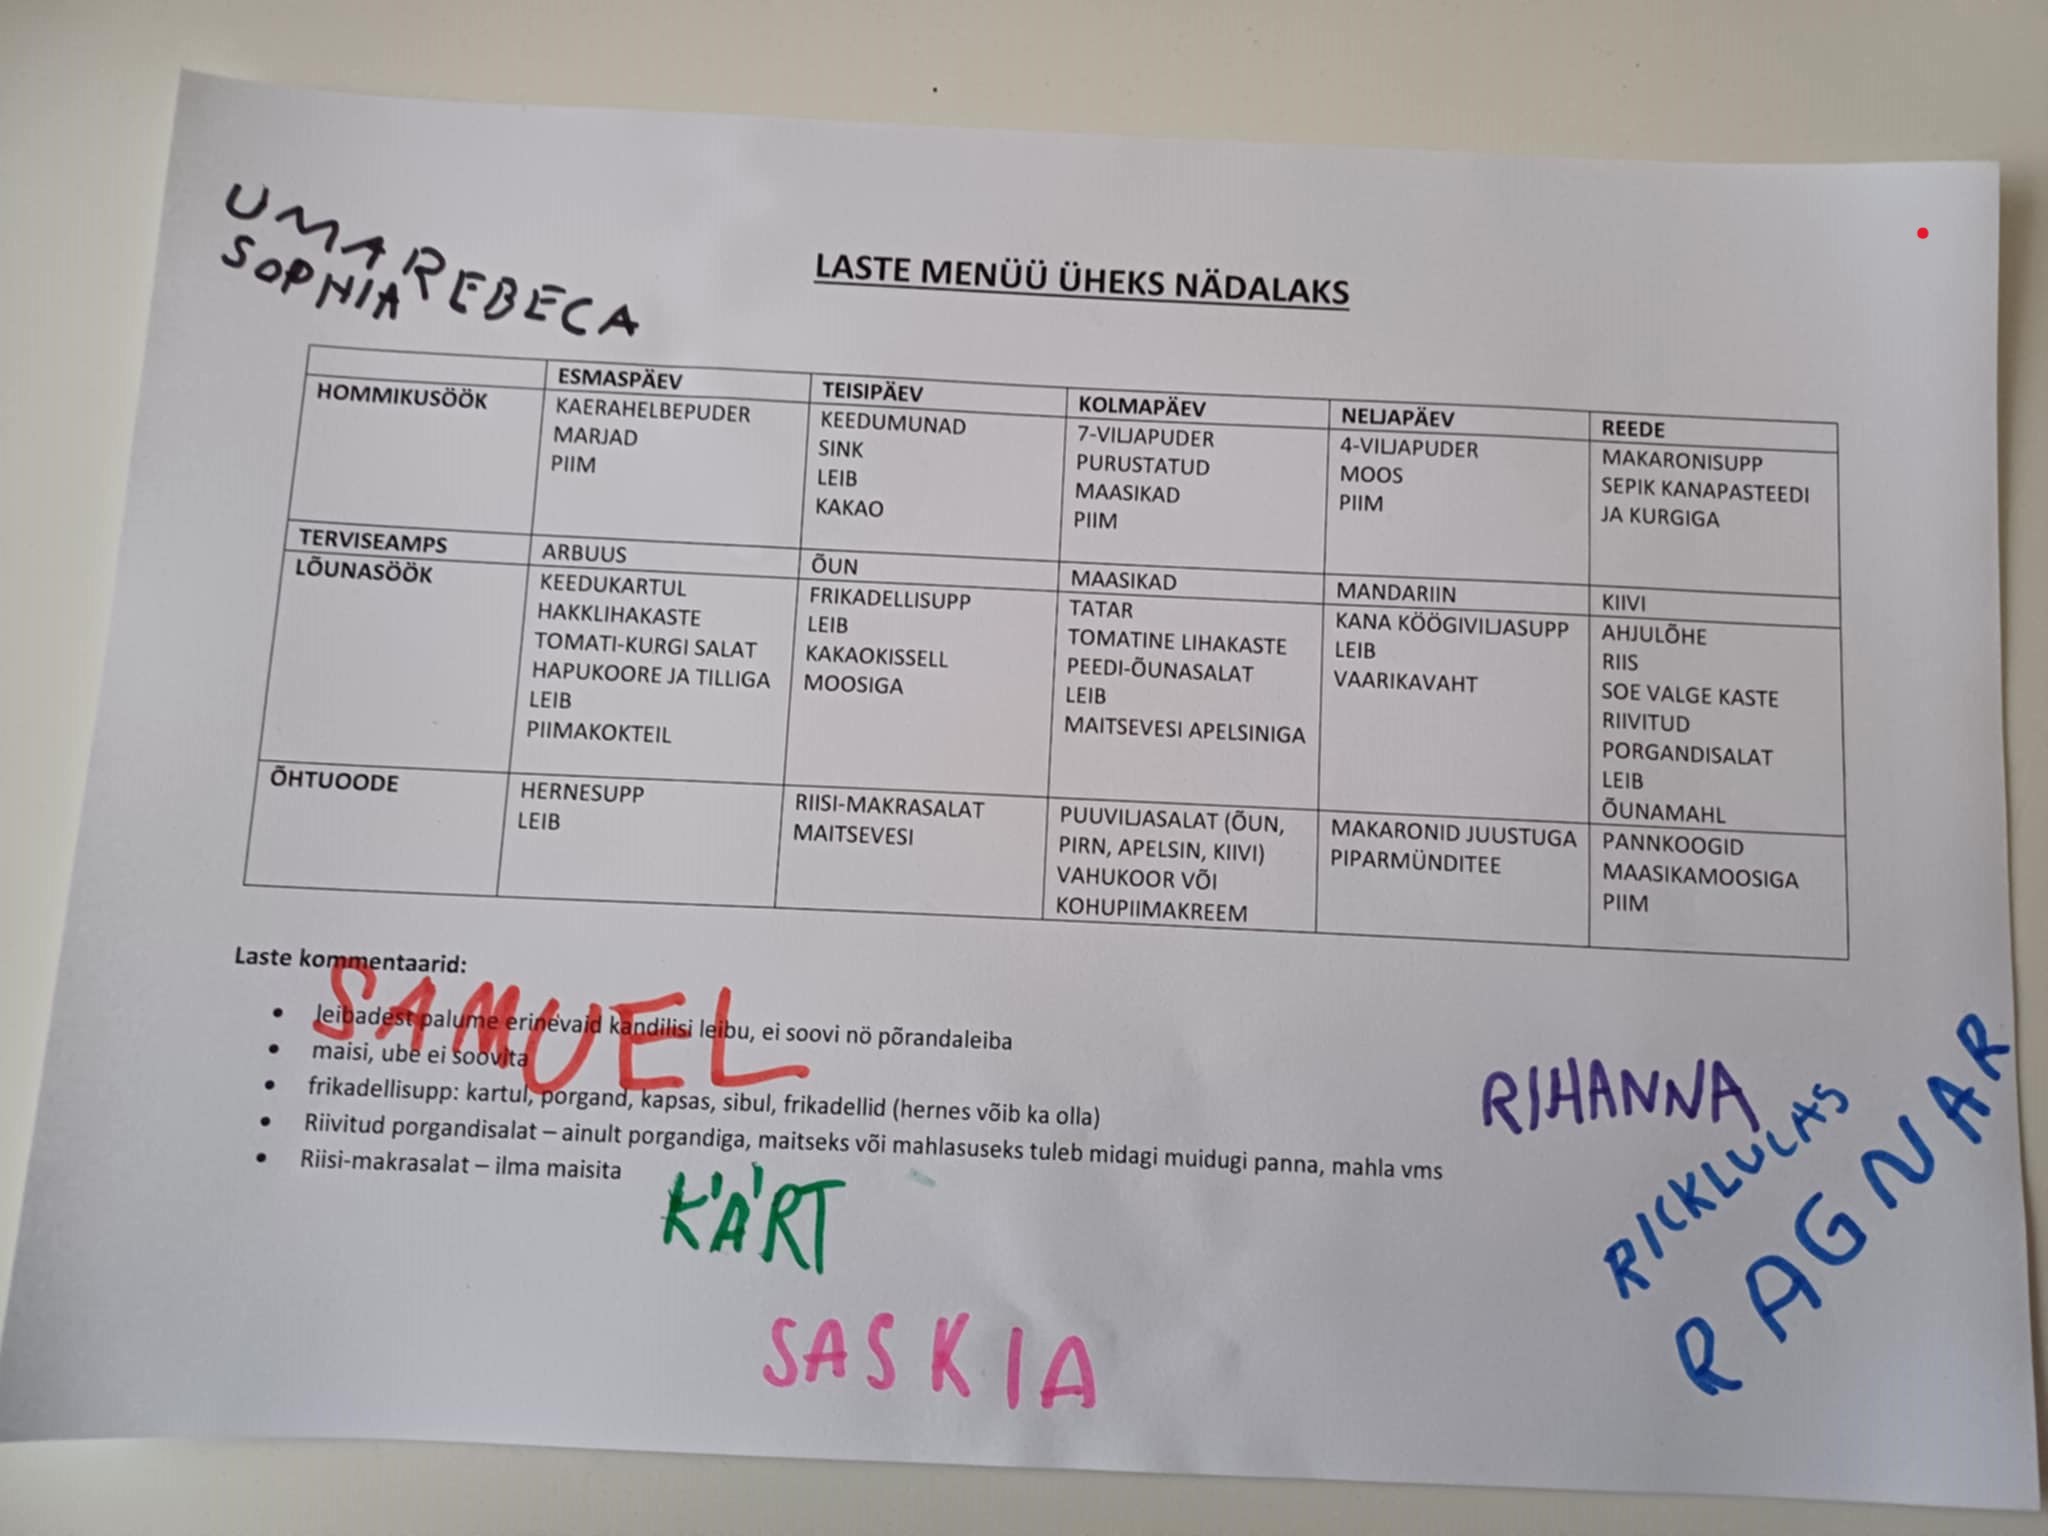 UMA REBECA
SOPHIA
LASTE MENÜÜ ÜHEKS NÄDALAKS
ESMASPÄEV TEISIPÄEV KOLMAPÄEV NELJAPÄEV REEDE
HOMMIKUSÖÖK
KAERAHELBEPUDER
MARJAD
PIIM
KEEDUMUNAD
SINK
LEIB
KAKAO
7-VILJAPUDER
PURUSTATUD
MAASIKAD
PIIM
4-VILJAPUDER
MOOS
PIIM
MAKARONISUPP
SEPIK KANAPASTEEDI
JA KURGIGA
TERVISEAMPS ARBUUS ÕUN MAASIKAD MANDARIIN KIIVI
LÕUNASÖÖK
KEEDUKARTUL
HAKKLIHAKASTE
TOMATI-KURGI SALAT
HAPUKOORE JA TILLIGA
LEIB
PIIMAKOKTEIL
FRIKADELLISUPP
LEIB
KAKAOKISSELL
MOOSIGA
TATAR
TOMATINE LIHAKASTE
PEEDI-ÕUNASALAT
LEIB
MAITSEVESI APELSINIGA
KANA KÖÖGIVILJASUPP
LEIB
VAARIKAVAHT
AHJULÕHE
RIIS
SOE VALGE KASTE
RIIVITUD
PORGANDISALAT
LEIB
ÕUNAMAHL
ÕHTUOODE
HERNESUPP
LEIB
RIISI-MAKRASALAT
MAITSEVESI
PUUVILJASALAT (ÕUN,
PIRN, APELSIN, KIIVI)
VAHUKOOR VÕI
KOHUPIIMAKREEM
MAKARONID JUUSTUGA
PIPARMÜNDITEE
PANNKOOGID
MAASIKAMOOSIGA
PIIM
Laste kommentaarid:
SAMUEL
• leibadest palume erinevaid kandilisi leibu, ei soovi nö põrandaleiba
• maisi, ube ei soovita
• frikadellisupp: kartul, porgand, kapsas, sibul, frikadellid (hernes võib ka olla)
• Riivitud porgandisalat – ainult porgandiga, maitseks või mahlasuseks tuleb midagi muidugi panna, mahla vms
• Riisi-makrasalat – ilma maisita
RIHANNA
RICKLULAS
RAGNAR
KÄRT
SASKIA